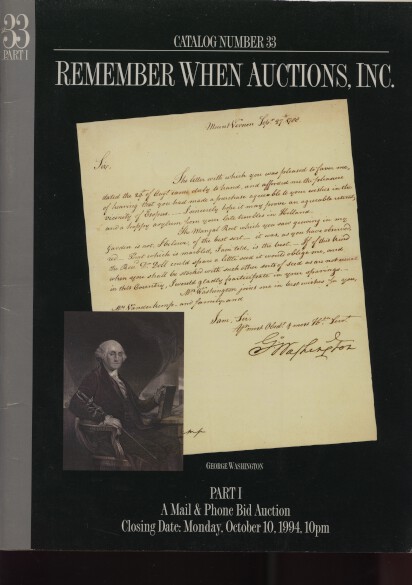 33
PART I
CATALOG NUMBER 33
REMEMBER WHEN AUCTIONS, INC.
Mount Vernon Sept. 27th 1788
Sir,
The letter with which you was pleased to favor me,
dated the 29th of Augt came duly to hand, and afforded me the pleasure
of hearing that you had made a purchase agreeable to your wishes in the
vicinity of Esopus. I sincerely hope it may prove an agreeable retreat,
and a happy asylum from your late troubles in Holland.
The Mangel Root which you saw growing in my
Garden is not, I believe, of the best sort — it was as you have observed
red. That which is marbled, I am told, is the best. If of this kind
the Revd Dr. Doll could spare a little seed it would oblige me, and
when you shall be stocked with such other sorts of seed as are not usual
in this Country, I would gladly participate in your sharings.
Mrs Washington joins me in best wishes for you,
Mrs Vanderkemp, and family and
I am, Sir
Yr most Obedt & most Hble Servt
Go Washington
GEORGE WASHINGTON
PART I
A Mail & Phone Bid Auction
Closing Date: Monday, October 10, 1994, 10pm